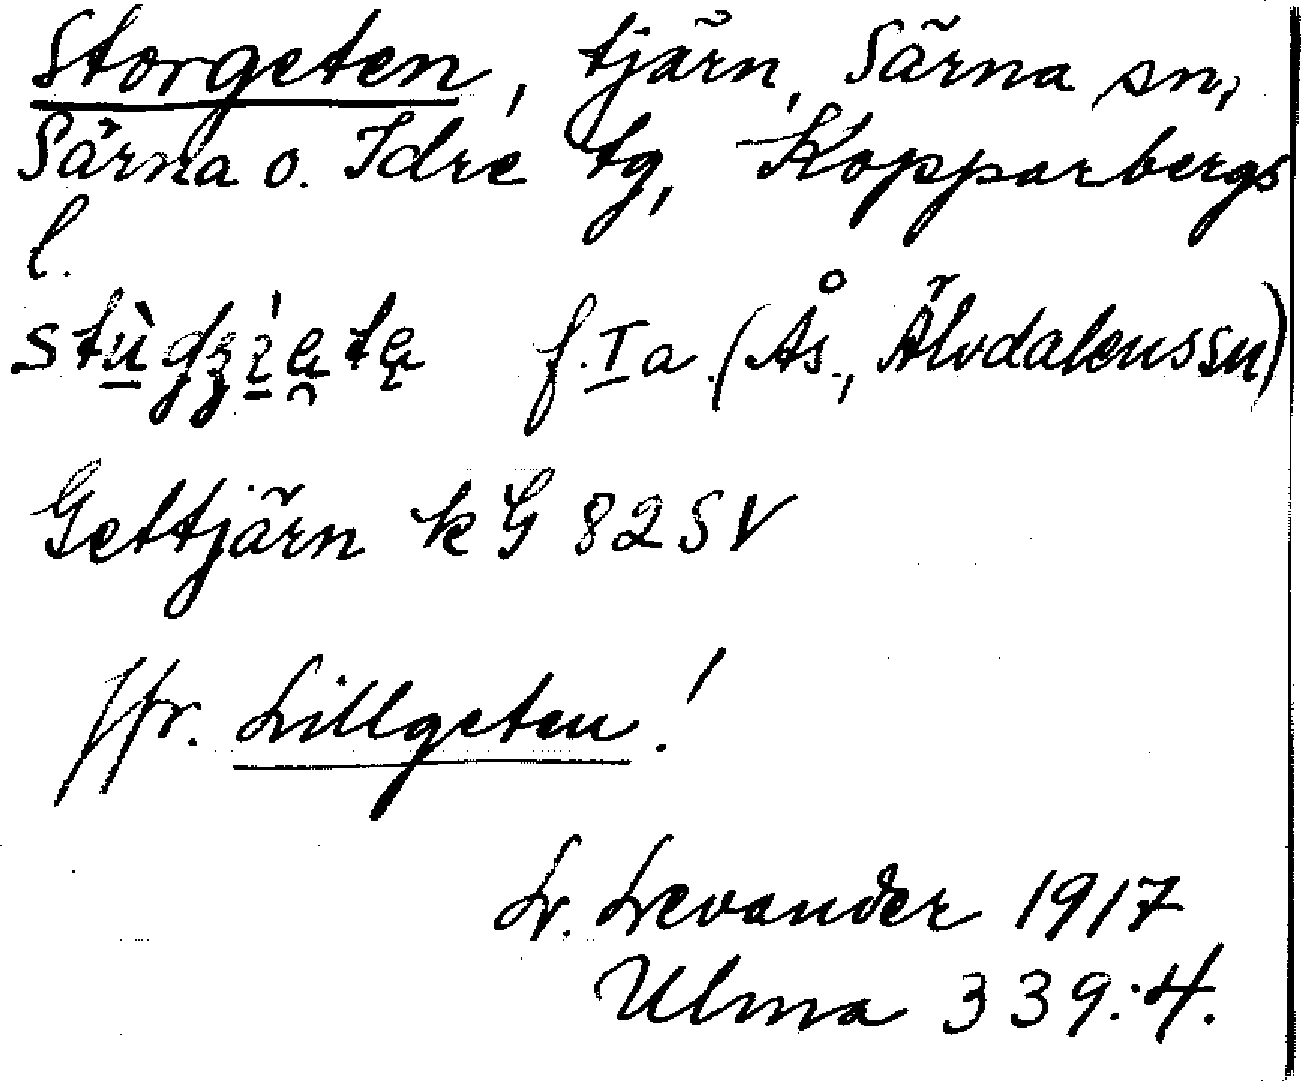 Storgeten, tjärn, Särna sn,
Särna o. Idre tg, Kopparbergs
l.
f. I a (Ås, Älvdalenssn)
Gettjärn k G 82 SV
Jfr. Lillgeten!
L. Levander 1917
Ulma 339:4.